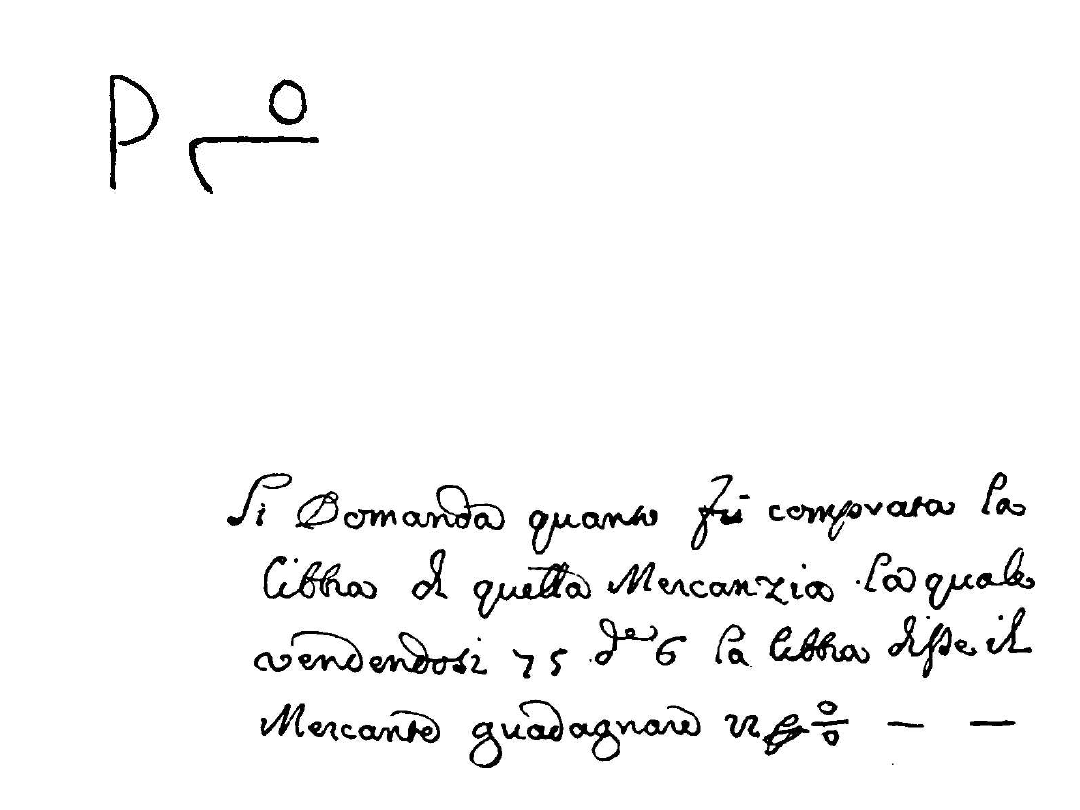 P o
Si Domanda quanto fù comprata la
libbra di quella Mercanzia la quale
vendendosi 75 de 6 la libbra disse il
Mercante guadagnare 22 p o/o — —